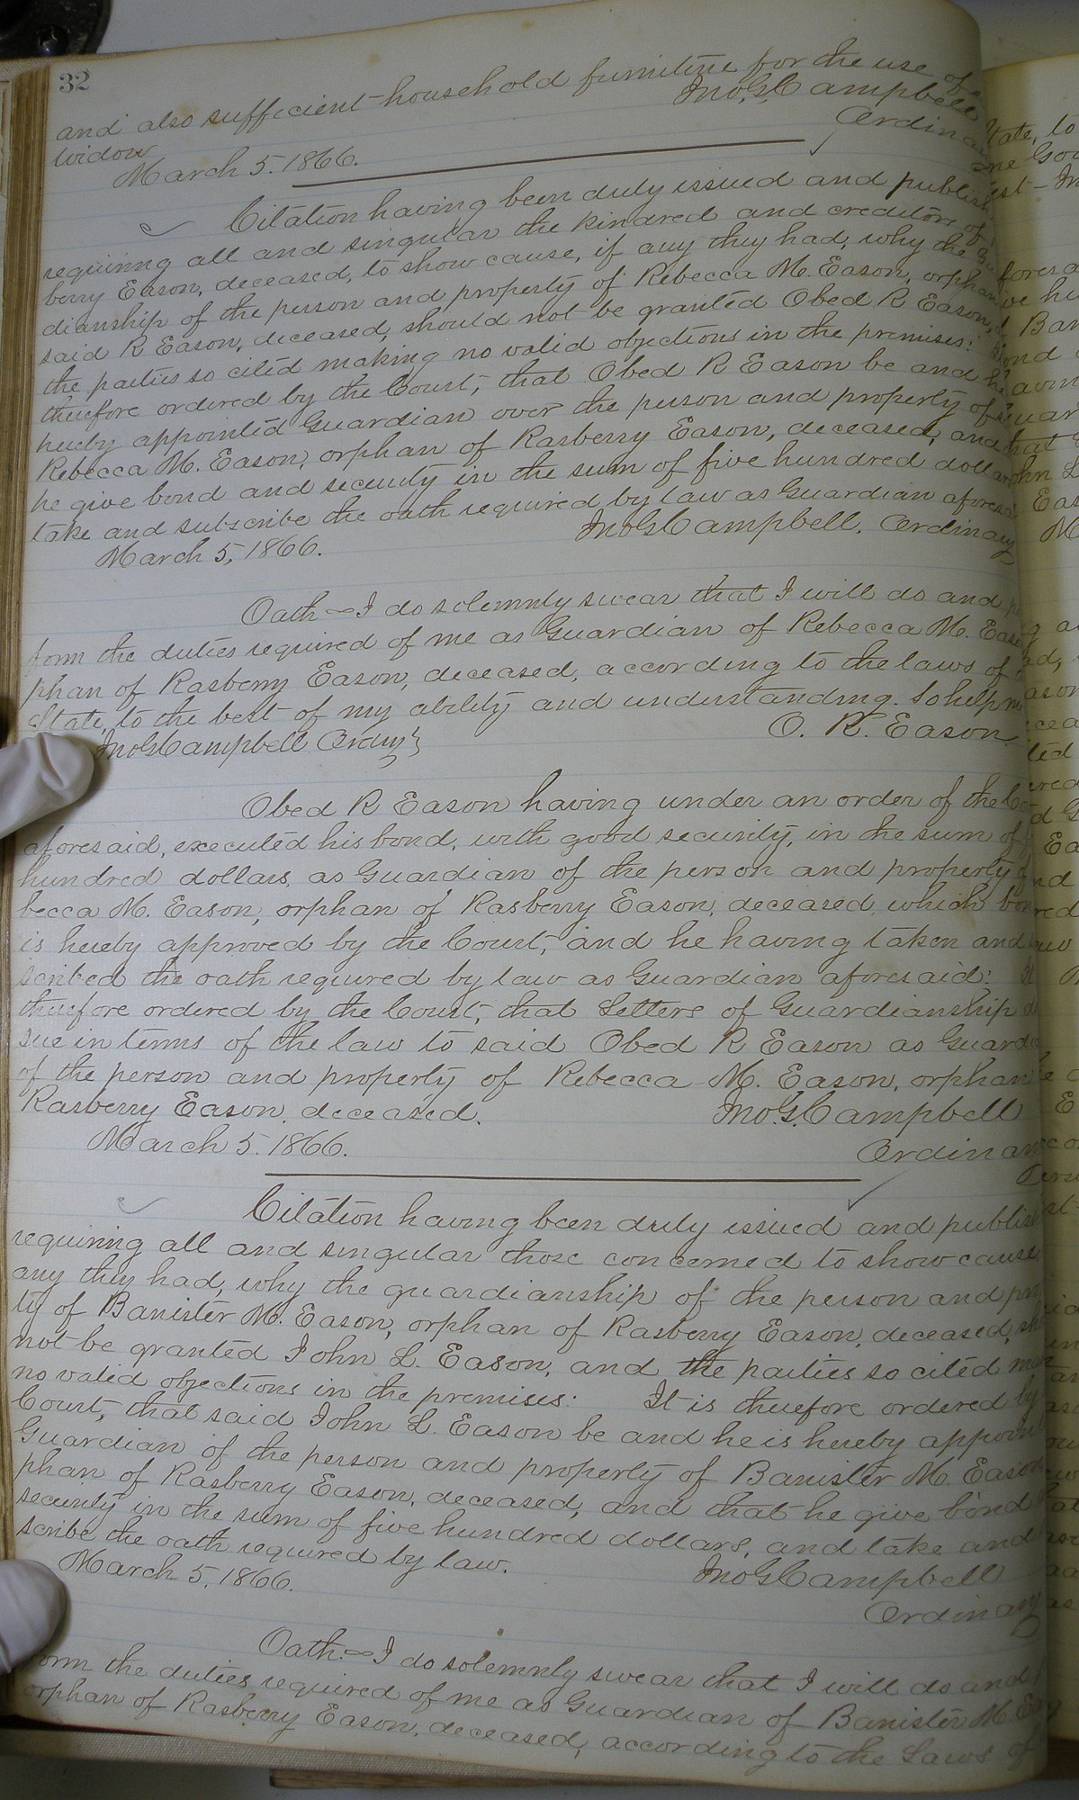 32
and also sufficient household furniture for the use of
widow Jno. G. Campbell
March 5. 1866. Ordina
Citation having been duly issued and publish
requiring all and singular the kindred and creditors of
berry Eason, deceased, to show cause, if any they had, why the
dianship of the person and property of Rebecca M. Eason, orphan
said R Eason, deceased, should not be granted Obed R Eason,
the parties so cited making no valid objections in the premises:
therefore ordered by the Court, that Obed R Eason be and he
hereby appointed Guardian over the person and property of
Rebecca M. Eason, orphan of Rasberry Eason, deceased, and
he give bond and security in the sum of five hundred dollar
take and subscribe the oath required by law as Guardian afores
March 5, 1866. Jno G Campbell, Ordinary
Oath — I do solemnly swear that I will do and
form the duties required of me as Guardian of Rebecca M. Eas
phan of Rasberry Eason, deceased, according to the laws of
State, to the best of my ability and understanding. So help m
Jno G Campbell Ordny } O. R. Eason
Obed R Eason having under an order of the
aforesaid, executed his bond, with good security, in the sum of
hundred dollars, as Guardian of the person and property
becca M. Eason, orphan of Rasberry Eason, deceased, which bon
is hereby approved by the Court, and he having taken and
scribed the oath required by law as Guardian aforesaid: It
therefore ordered by the Court, that Letters of Guardianship
sue in terms of the law to said Obed R Eason as Guardi
of the person and property of Rebecca M. Eason, orphan
Rasberry Eason, deceased. Jno. G. Campbell
March 5. 1866. Ordinar
Citation having been duly issued and publish
requiring all and singular those concerned to show cause,
any they had, why the guardianship of the person and pr
ty of Banister M. Eason, orphan of Rasberry Eason, deceased, sh
not be granted John L. Eason, and the parties so cited m
no valid objections in the premises: It is therefore ordered by
Court, that said John L. Eason be and he is hereby appoint
Guardian of the person and property of Banister M. Eason
phan of Rasberry Eason, deceased, and that he give bond
security in the sum of five hundred dollars, and take and
scribe the oath required by law. Jno G Campbell
March 5, 1866. Ordinary
Oath — I do solemnly swear that I will do and
form the duties required of me as Guardian of Banister M. Ea
orphan of Rasberry Eason, deceased, according to the Laws of